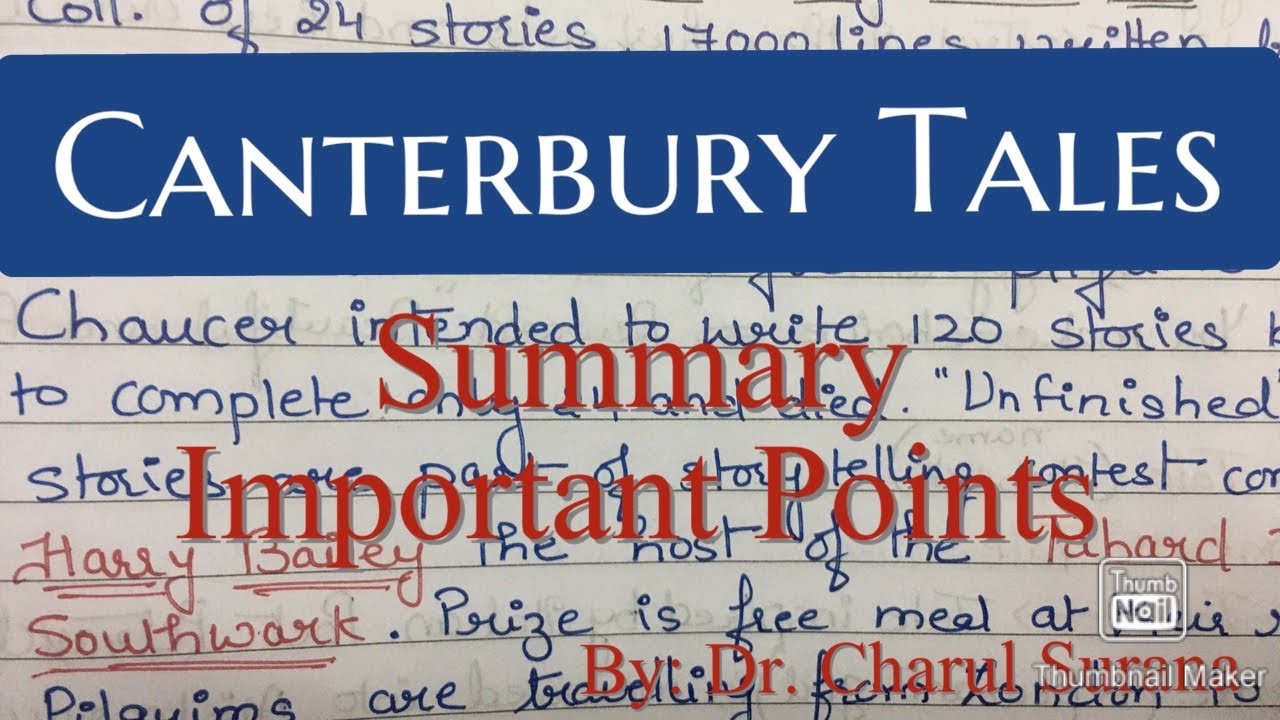 Coll. of 24 stories, 17000 lines written
CANTERBURY TALES
Chaucer intended to write 120 stories
Summary
to complete only 24 and died. "Unfinished"
Important Points
stories are part of story telling contest
Harry Bailey the host of the Tabard
Thumb
Nail
Southwark. Prize is free meal at
By: Dr. Charul Surana
Thumbnail Maker
Pilgrims are travelling from London to